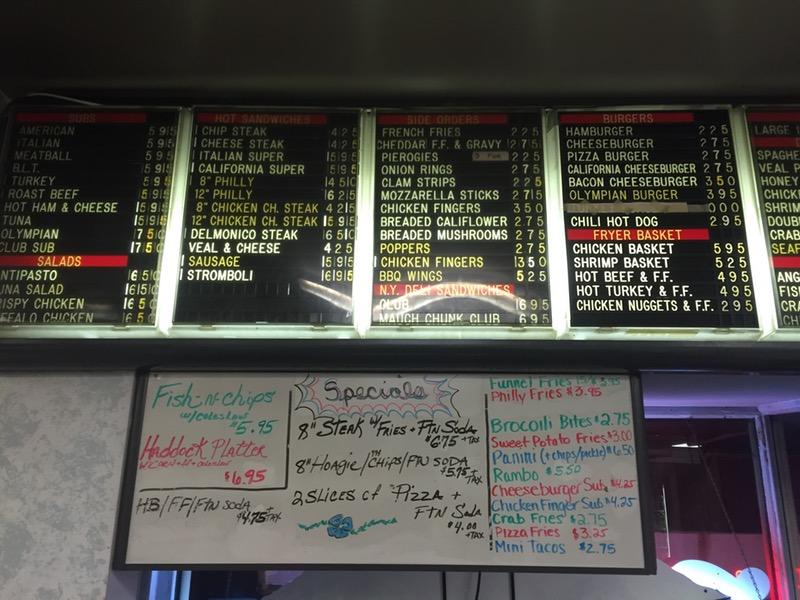 SUBS
AMERICAN 5 95
ITALIAN 5 95
MEATBALL 5 95
B.L.T. 5 95
TURKEY 5 95
ROAST BEEF 5 95
HOT HAM & CHEESE 5 95
TUNA 5 95
OLYMPIAN 7 50
CLUB SUB 7 50
SALADS
NTIPASTO 6 50
UNA SALAD 6 50
RISPY CHICKEN 6 50
FFALO CHICKEN 6 50
HOT SANDWICHES
CHIP STEAK 4 25
CHEESE STEAK 4 25
ITALIAN SUPER 5 95
CALIFORNIA SUPER 5 95
8" PHILLY 4 50
12" PHILLY 6 25
CHICKEN CH. STEAK 4 25
12" CHICKEN CH. STEAK 5 95
DELMONICO STEAK 6 50
VEAL & CHEESE 4 25
SAUSAGE 5 95
STROMBOLI 5 95
SIDE ORDERS
FRENCH FRIES 2 25
CHEDDAR F.F. & GRAVY 2 75
PIEROGIES 2 25
ONION RINGS 2 75
CLAM STRIPS 2 25
MOZZARELLA STICKS 2 75
CHICKEN FINGERS 3 50
BREADED CALIFLOWER 2 75
BREADED MUSHROOMS 2 75
POPPERS 2 75
CHICKEN FINGERS 3 50
BBQ WINGS 5 25
N.Y. DELI SANDWICHES
CLUB 6 95
MAUCH CHUNK CLUB 6 95
BURGERS
HAMBURGER 2 25
CHEESEBURGER 2 75
PIZZA BURGER 2 75
CALIFORNIA CHEESEBURGER 2 75
BACON CHEESEBURGER 3 50
OLYMPIAN BURGER 3 95
0 00
CHILI HOT DOG 2 95
FRYER BASKET
CHICKEN BASKET 5 95
SHRIMP BASKET 5 25
HOT BEEF & F.F. 4 95
HOT TURKEY & F.F. 4 95
CHICKEN NUGGETS & F.F. 4 95
LARGE
SPAGHE
VEAL P
HONEY
CHICK
SHRIM
DOUB
CRAB
SEAF
ANG
FISH
CRA
Fish-n-chips
w/coleslaw
$5.95
Haddock Platter
$6.95
HB/FF/FTN SODA
$4.75 + TAX
Specials
8" STEAK w/ FRIES + FTN SODA
$6.75 + TAX
8" HOAGIE/CHIPS/FTN SODA
$5.75 + TAX
2 SLICES of PIZZA +
FTN Soda
$4.00
+TAX
Funnel Fries
Philly Fries $3.95
Brocoili Bites $2.75
Sweet Potato Fries $3.00
Panini (+chips/pickle) $6.50
Rambo $5.50
Cheeseburger Sub $4.25
Chicken Finger Sub $4.25
Crab Fries $2.75
Pizza Fries $3.25
Mini Tacos $2.75